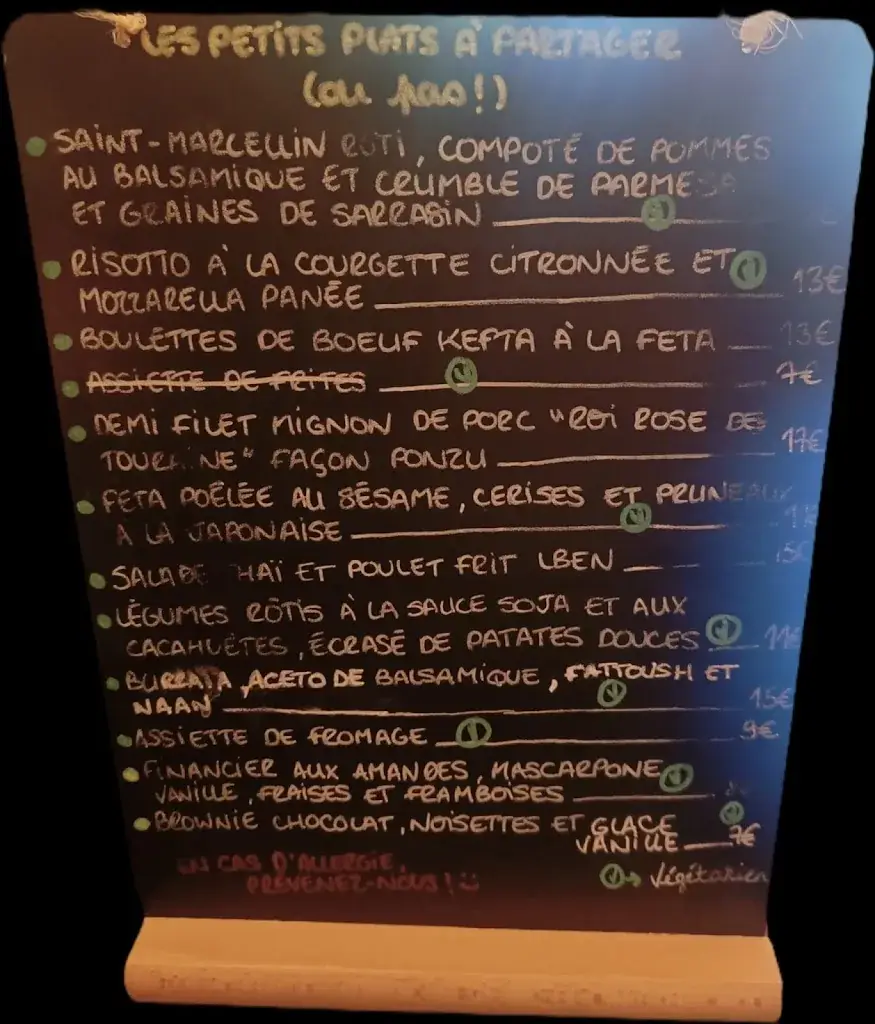 LES PETITS PLATS À PARTAGER
(ou pas!)
SAINT-MARCELLIN RÔTI, COMPOTÉ DE POMMES
AU BALSAMIQUE ET CRUMBLE DE PARMESA
ET GRAINES DE SARRASIN
RISOTTO À LA COURGETTE CITRONNÉE ET
MOZZARELLA PANÉE 13€
BOULETTES DE BOEUF KEFTA À LA FETA 13€
ASSIETTE DE FRITES 7€
DEMI FILET MIGNON DE PORC "ROI ROSE DE
TOURAINE" FAÇON PONZU 17€
FETA POÊLÉE AU SÉSAME, CERISES ET PRUNEAUX
À LA JAPONAISE
SALADE THAÏ ET POULET FRIT LBEN
LÉGUMES RÔTIS À LA SAUCE SOJA ET AUX
CACAHUÈTES, ÉCRASÉ DE PATATES DOUCES 11€
BURRATA, ACETO DE BALSAMIQUE, FATTOUSH ET
NAAN 15€
ASSIETTE DE FROMAGE 9€
FINANCIER AUX AMANDES, MASCARPONE
VANILLE, FRAISES ET FRAMBOISES
BROWNIE CHOCOLAT, NOISETTES ET GLACE
VANILLE 7€
EN CAS D'ALLERGIE,
PRÉVENEZ-NOUS!
Végétarien